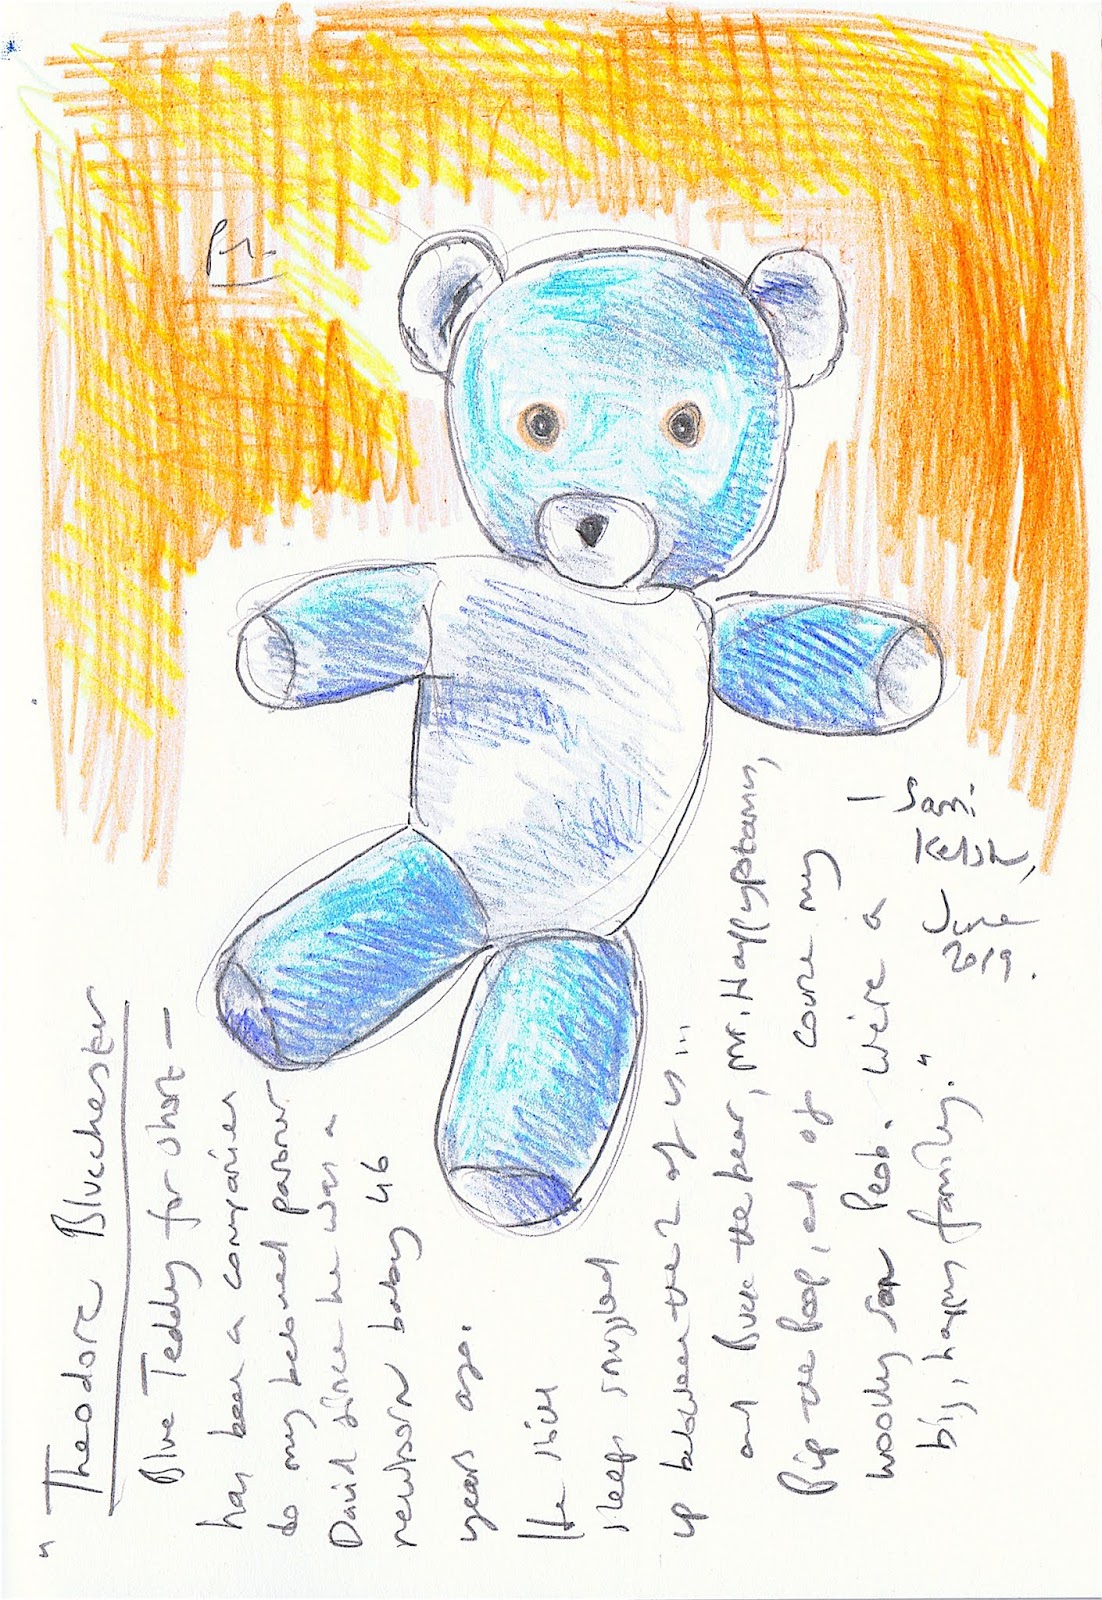 "Theodore Bluechester
Blue Teddy for short —
has been a companion
to my beloved partner
David since he was a
newborn baby 46
years ago.
He still
sleeps snuggled
up between the 2 of us...
and Buck the bear, Mr. Happypotamus,
Pip the and of course my
woolly son Peeb. We're a
big, happy family."
— Sami
Kelsh,
June
2019.